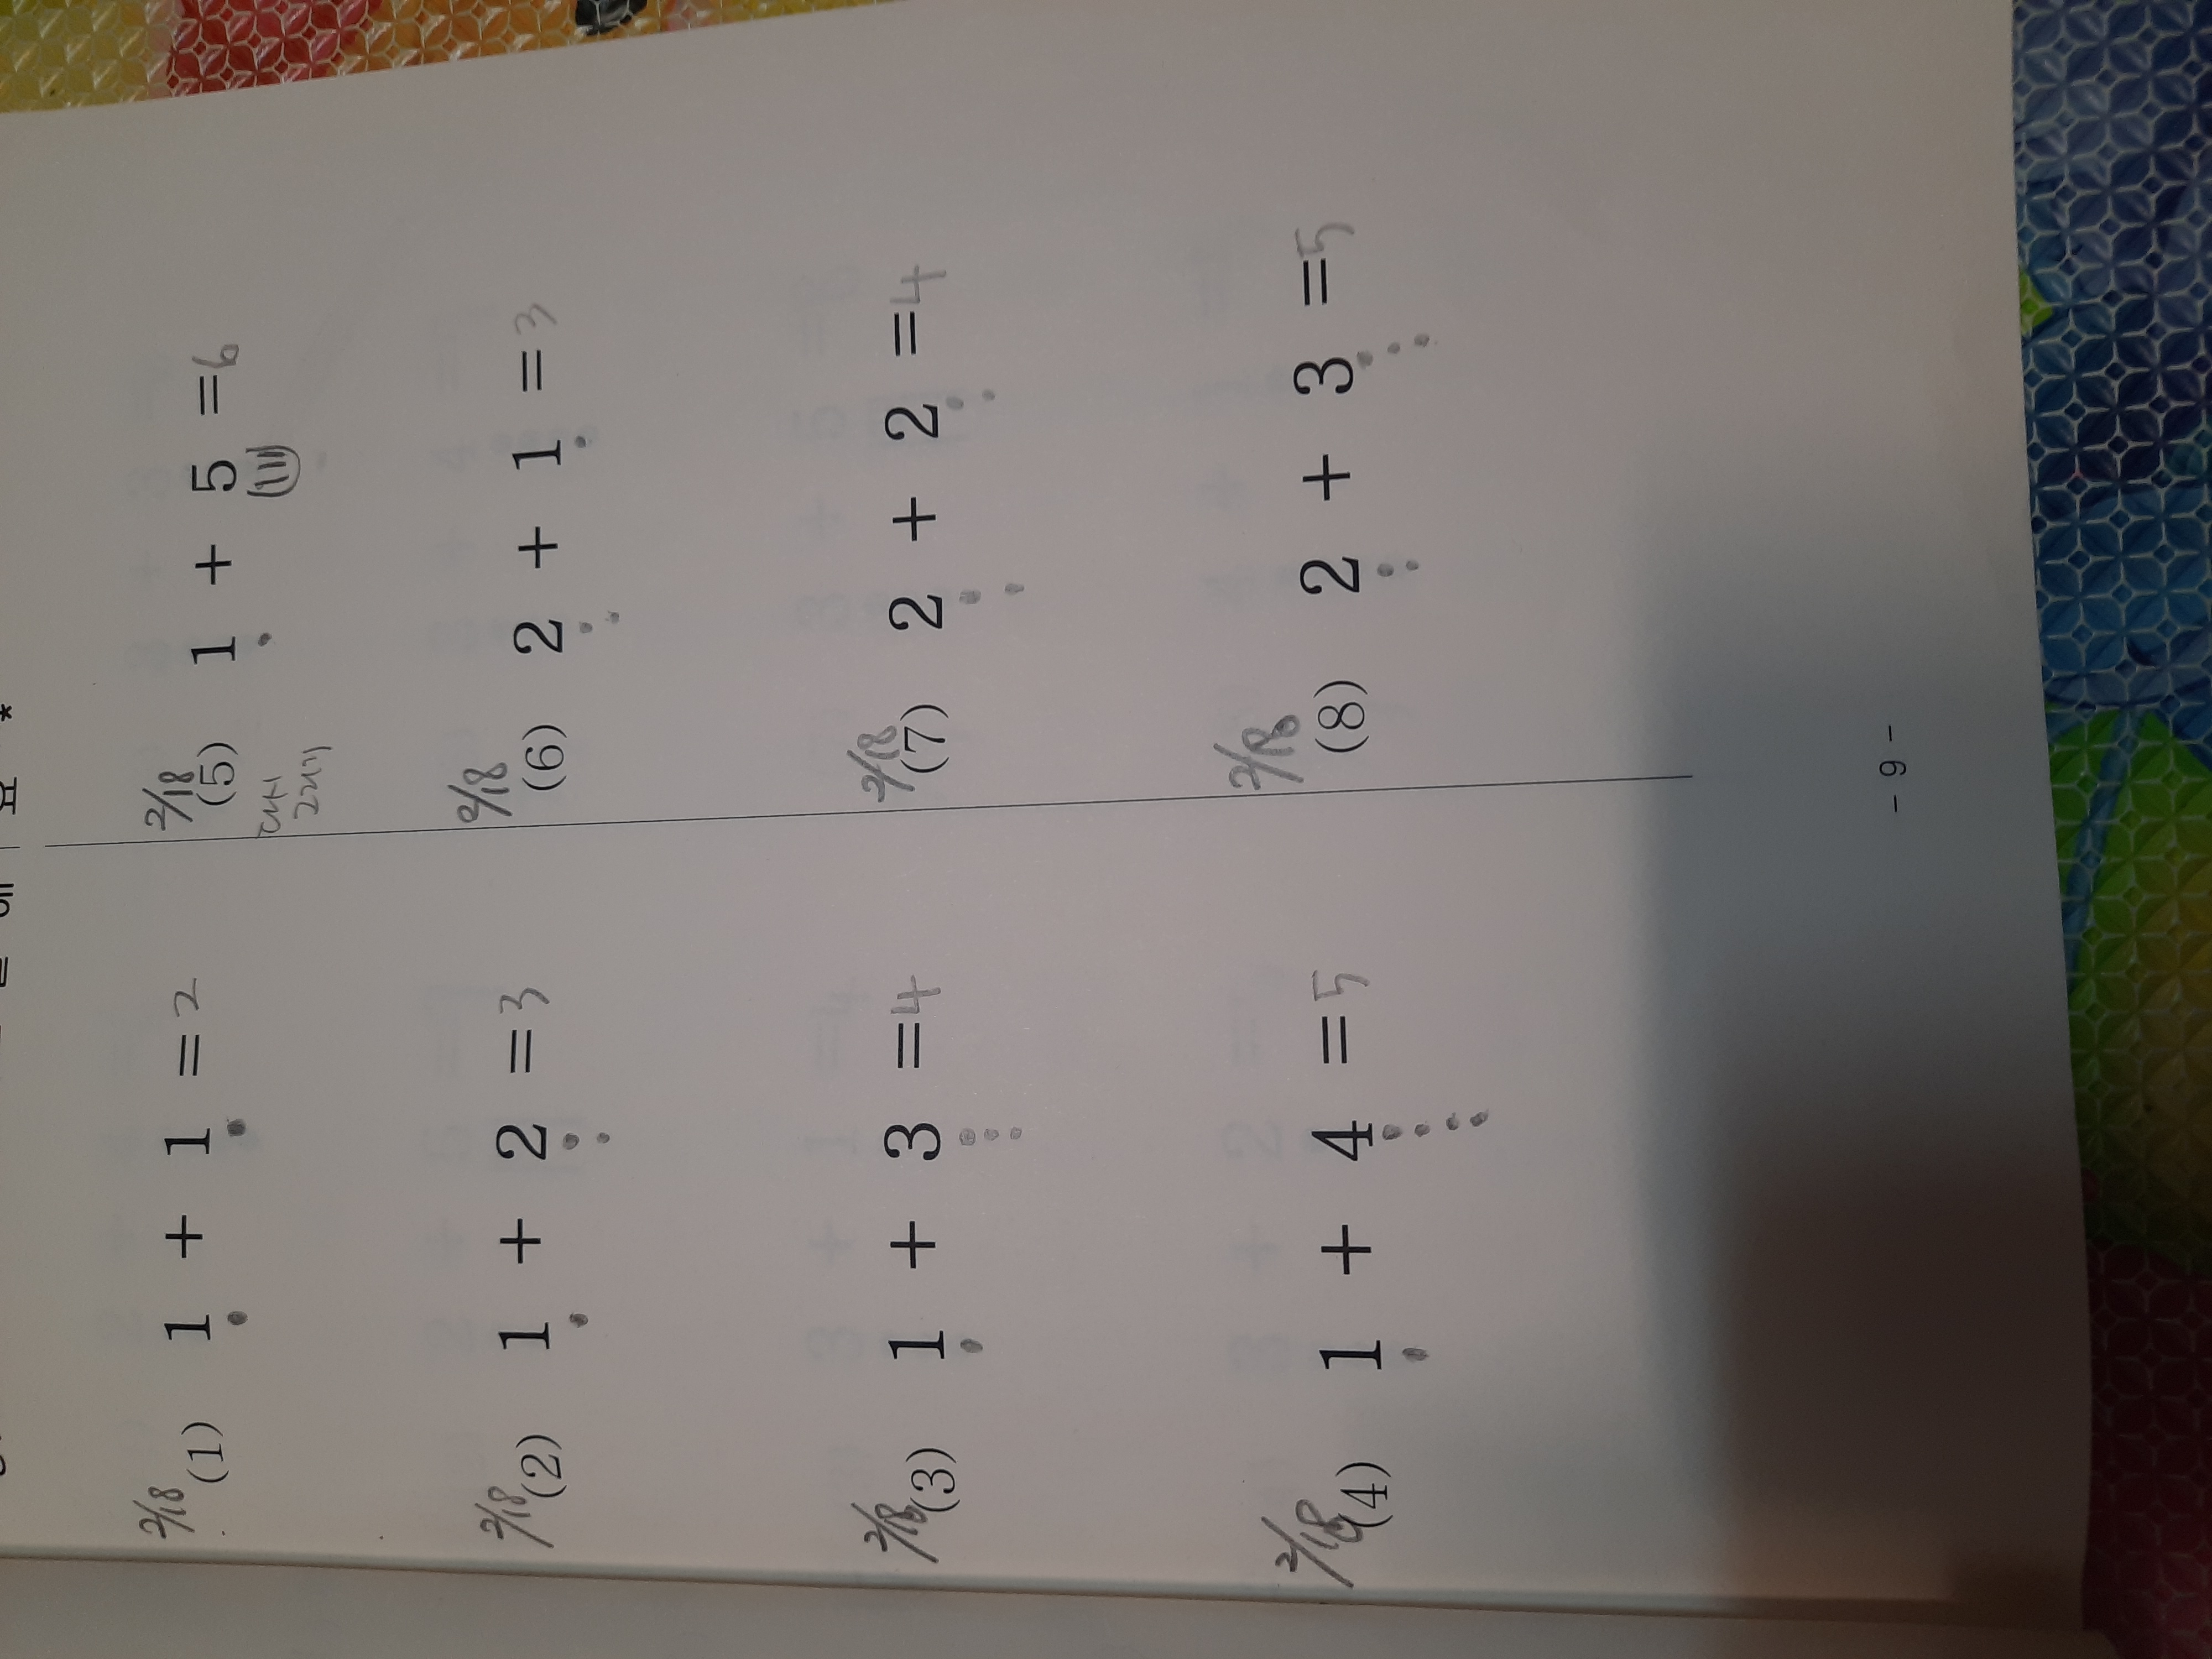 2/18
(1) 1 + 1 = 2
2/18
(2) 1 + 2 = 3
2/18
(3) 1 + 3 = 4
2/18
(4) 1 + 4 = 5
2/18
(5) 1 + 5 = 6
2/18
(6) 2 + 1 = 3
2/18
(7) 2 + 2 = 4
2/18
(8) 2 + 3 = 5
- 9 -